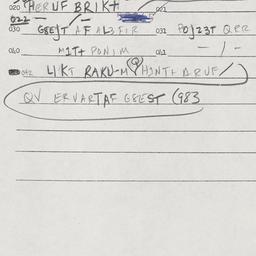 020 HERUF BRIKT 021
022
030 GEEST AF AL3FIR 031 POJZ3T QRR
040 MIT+ PONIM 041 - / -
042 LIKT RAKU-M HINT+ ARUF/
QV ERVARTAF GEEST (983